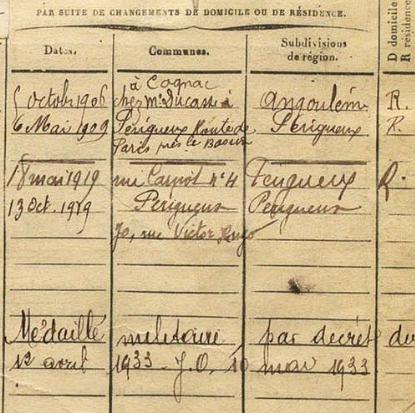 PAR SUITE DE CHANGEMENTS DE DOMICILE OU DE RÉSIDENCE.
Dates. Communes. Subdivisions de région. D domicile R résidence
à Cognac
5 octobre 1906 chez Mr Ducasse à Angoulême R.
6 Mai 1909 Périgueux Route de Périgueux R.
Paris près le
18 mai 1919 rue Carnot n° 4 Périgueux R.
13 Oct. 1919 Périgueux Périgueux
70, rue Victor Hugo
Médaille militaire par décret du
12 avril 1933 - J.O. 10 mai 1933